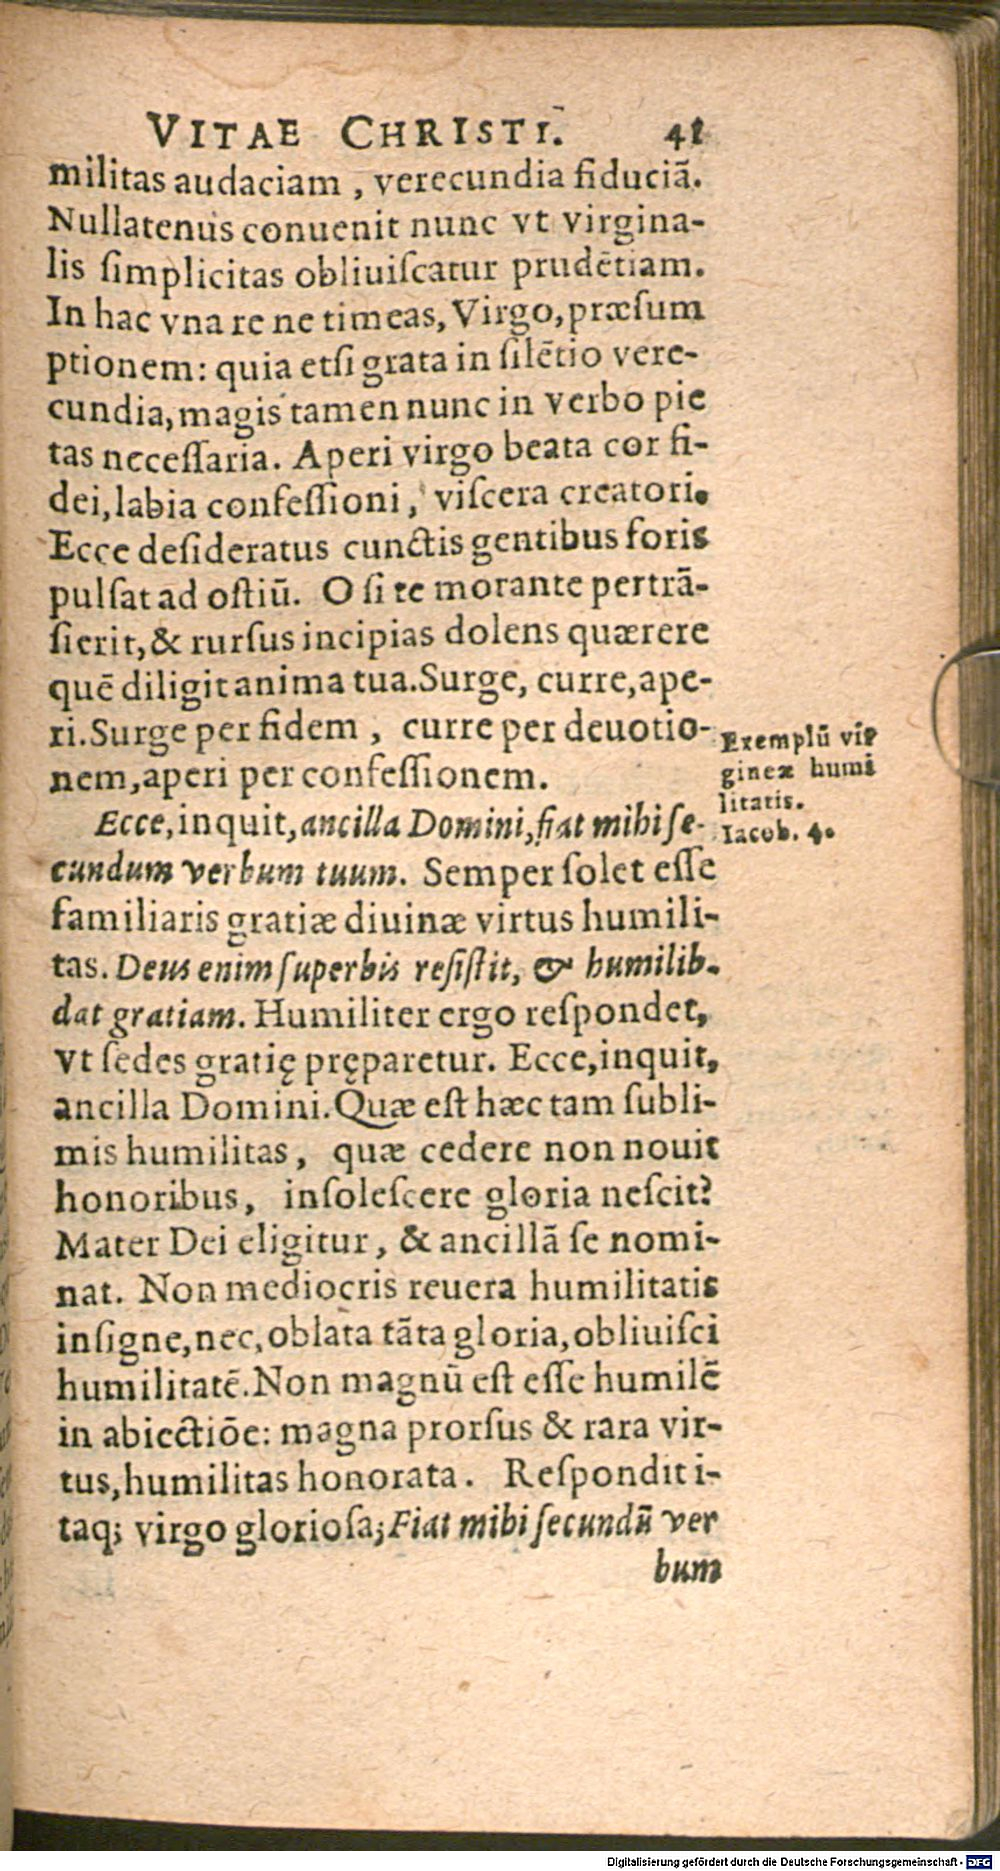 VITAE CHRISTI. 41
militas audaciam, verecundia fiduciā.
Nullatenus conuenit nunc vt virgina-
lis ſimplicitas obliuiſcatur prudētiam.
In hac vna re ne timeas, Virgo, præſum
ptionem: quia etſi grata in ſilētio vere-
cundia, magis tamen nunc in verbo pie
tas neceſſaria. Aperi virgo beata cor fi-
dei, labia confeſſioni, viſcera creatori.
Ecce deſideratus cunctis gentibus foris
pulſat ad oſtiū. O ſi te morante pertrā-
ſierit, & rurſus incipias dolens quærere
quē diligit anima tua. Surge, curre, ape-
ri. Surge per fidem, curre per deuotio-
nem, aperi per confeſſionem.
Exemplū vir
gineæ humi
litatis.
Iacob. 4.
Ecce, inquit, ancilla Domini, fiat mihi ſe-
cundum verbum tuum. Semper ſolet eſſe
familiaris gratiæ diuinæ virtus humili-
tas. Deus enim ſuperbis reſiſtit, & humilib.
dat gratiam. Humiliter ergo reſpondet,
vt ſedes gratię pręparetur. Ecce, inquit,
ancilla Domini. Quæ eſt hæc tam ſubli-
mis humilitas, quæ cedere non nouit
honoribus, inſoleſcere gloria neſcit?
Mater Dei eligitur, & ancillā ſe nomi-
nat. Non mediocris reuera humilitatis
inſigne, nec, oblata tāta gloria, obliuiſci
humilitatē. Non magnū eſt eſſe humilē
in abiectiōe: magna prorſus & rara vir-
tus, humilitas honorata. Reſpondit i-
taq; virgo glorioſa; Fiat mihi ſecundū ver
bum
Digitalisierung gefördert durch die Deutsche Forschungsgemeinschaft - DFG